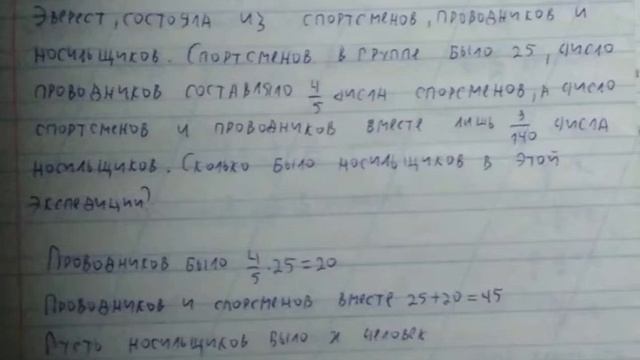 Эверест, состояла из спортсменов, проводников и
носильщиков. Спортсменов в группе было 25, число
проводников составляло 4/5 числа спорсменов, а число
спортсменов и проводников вместе лишь 9/140 числа
носильщиков. Сколько было носильщиков в этой
экспедиции?
Проводников было 4/5 · 25 = 20
Проводников и спорсменов вместе 25+20=45
Пусть носильщиков было х человек